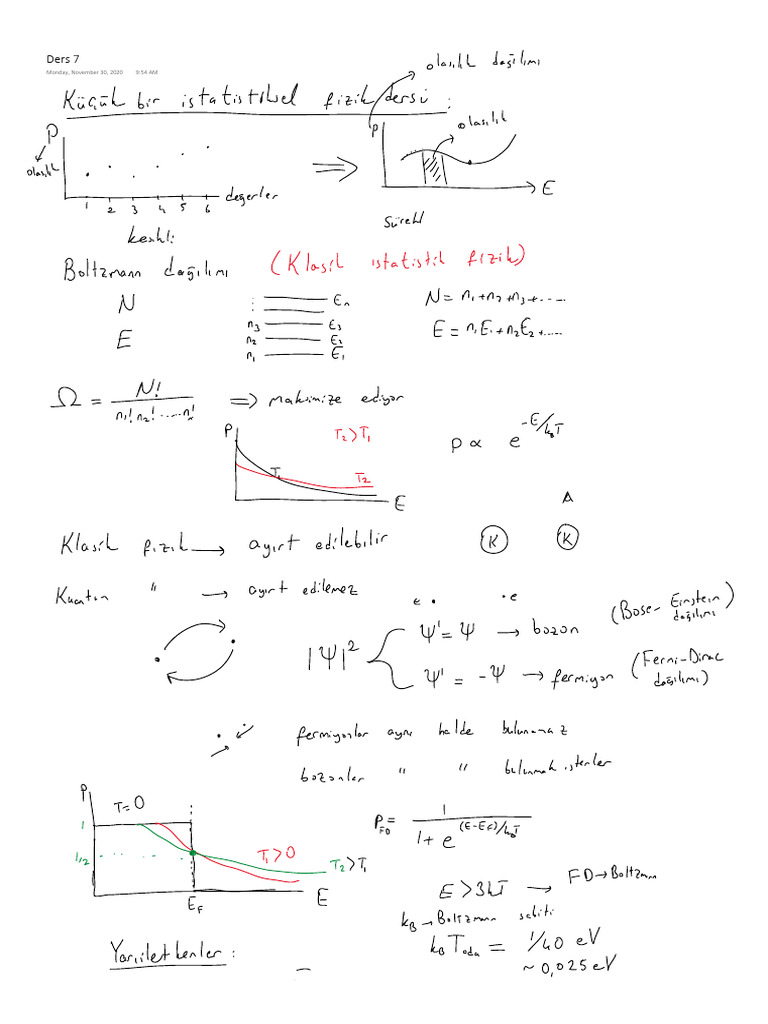 Ders 7
Monday, November 30, 2020 9:54 AM
olasılık dağılımı
Küçük bir istatistiksel fizik dersi :
P
olasılık
1 2 3 4 5 6
değerler
kesikli
⇒
P
olasılık
E
Sürekli
Boltzmann dağılımı (Klasik istatistik fizik)
N
E
⋮ Eₙ
n₃ E₃
n₂ E₂
n₁ E₁
N = n₁+n₂+n₃+.....
E = n₁E₁+n₂E₂+.....
Ω = N! / n₁! n₂! ..... nₙ! ⇒ maksimize ediyor
P
T₂>T₁
T₁
T₂
E
P ∝ e^(-E/k_BT)
A
K K
Klasik fizik → ayırt edilebilir
Kuantum " → ayırt edilemez
e • • e
|Ψ|²
Ψ' = Ψ → bozon (Bose-Einstein dağılımı)
Ψ' = -Ψ → fermiyon (Fermi-Dirac dağılımı)
fermiyonlar aynı halde bulunamaz
bozonlar " " bulunmak isterler
P
T=0
1
1/2
T₁>0
T₂>T₁
E_F
E
P_FD = 1 / 1+e^((E-E_F)/k_BT)
E > 3kT → FD→Boltzmann
k_B → Boltzmann sabiti
k_B T_oda = 1/40 eV
~ 0,025 eV
Yarıiletkenler :